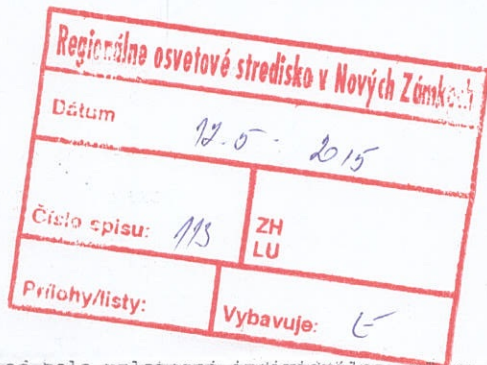 Regionálne osvetové stredisko v Nových Zámkoch
Dátum
12. 5 - 2015
Číslo spisu: 113
ZH
LU
Prílohy/listy:
Vybavuje: